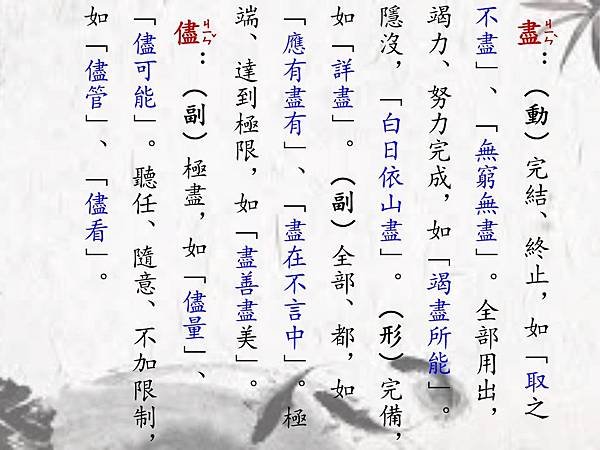 盡ㄐㄧㄣˋ:(動)完結、終止,如「取之
不盡」、「無窮無盡」。全部用出,
竭力、努力完成,如「竭盡所能」。
隱沒,「白日依山盡」。(形)完備,
如「詳盡」。(副)全部、都,如
「應有盡有」、「盡在不言中」。極
端、達到極限,如「盡善盡美」。
儘ㄐㄧㄣˇ:(副)極盡,如「儘量」、
「儘可能」。聽任、隨意、不加限制,
如「儘管」、「儘看」。